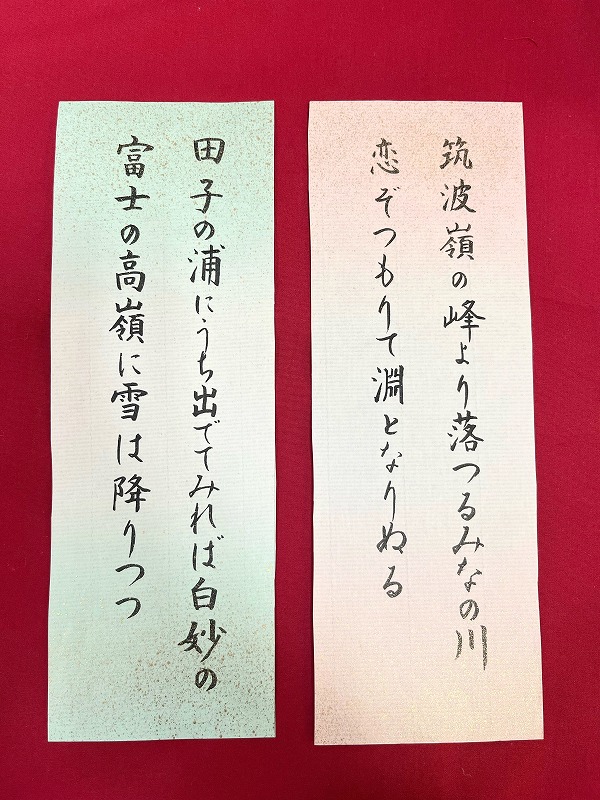 筑波嶺の峰より落つるみなの川
恋ぞつもりて淵となりぬる
田子の浦にうち出でてみれば白妙の
富士の高嶺に雪は降りつつ